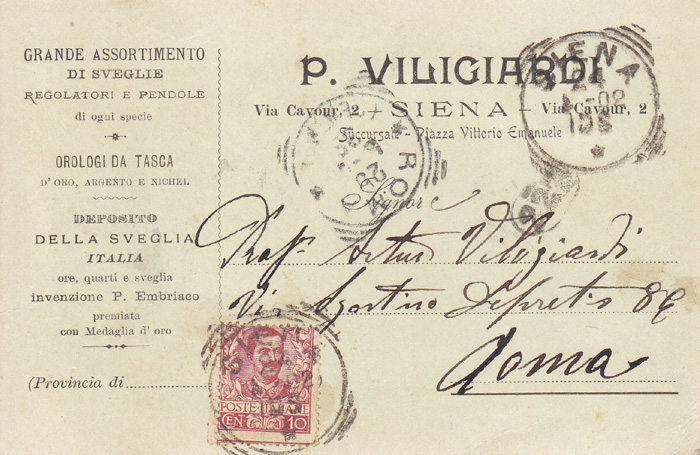 GRANDE ASSORTIMENTO
DI SVEGLIE
REGOLATORI E PENDOLE
di ogni specie
OROLOGI DA TASCA
D' ORO, ARGENTO E NICHEL
DEPOSITO
DELLA SVEGLIA
ITALIA
ore, quarti e sveglia
invenzione P. Embriaco
premiata
con Medaglia d' oro
(Provincia di
)
P. VILIGIARDI
Via Cavour, 2 SIENA Via Cavour, 2
Succursale - Piazza Vittorio Emanuele
SIENA
ROMA
Signore
Prof. Arturo Viligiardi
Via Agostino Depretis 86
Roma
SIENA
POSTE ITALIANE
CEN 10